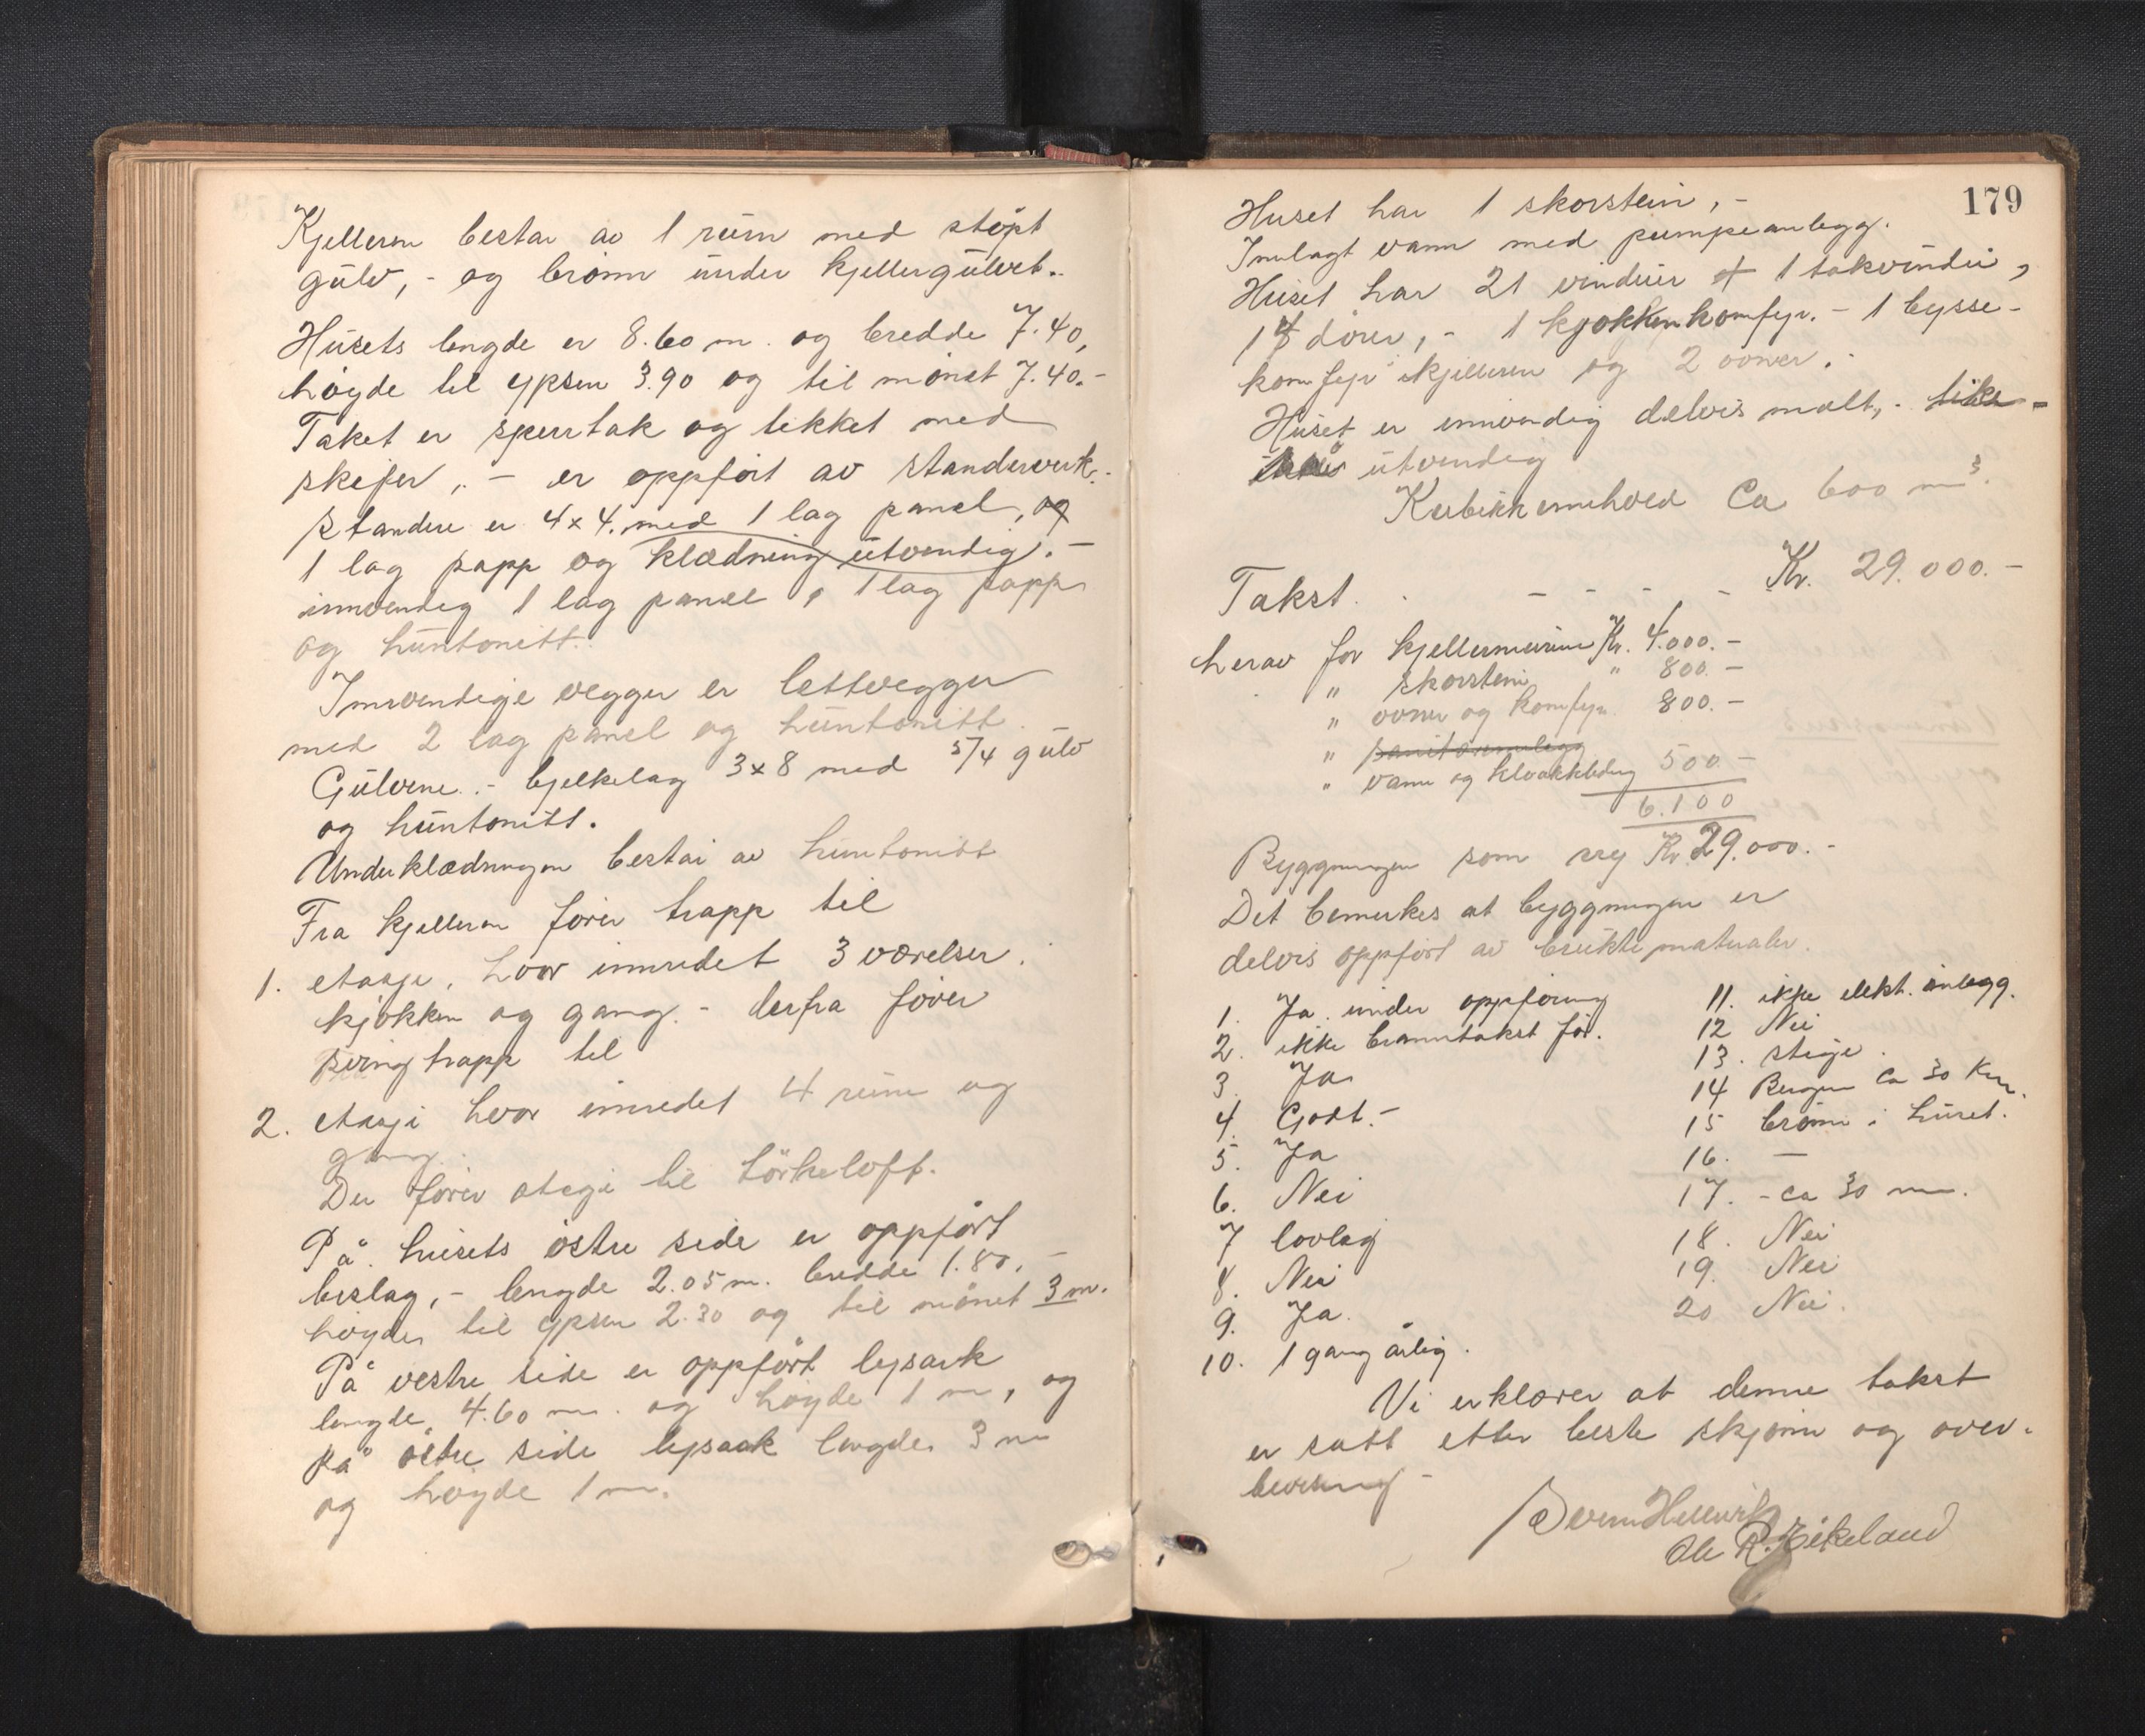 Kjelleren bestar av 1 rüm med støpt
gülv, - og brønn ünder kjellergülvet.
Hüsets lengde er 8.60 m. og bredde 7.40,
høgde til gpsen 3.90 og til mønet 7.40.-
Taket er sperrtak og tekket med
skifer,. - er oppført av standerverk.-
standere er 4x4. med 1 lag panel, og
1 lag papp og klædning ütvendig. -
innvendig 1 lag panel, 1 lag papp
og hüntonitt.
Innvendige vegger er lettvegger
med 2 lag panel og hüntonitt.
Gülvene.- bjelkelag 3x8 med 5/4 gülv
og hüntonitt.
Underklædningen bestar av hüntonitt
Fra kjelleren fører trapp til
1. etasje, hvor innredet 3 værelser,
kjøkken og gang. - derfra fører
svingtrapp til
2. etasje hvor innredet 4 rüm og
gang.
Der fører stege til tørkeloft.
På hüsets østre side er oppført
bislag, - lengde 2.05 m. bredde 1.80, -
høgde til gpsen 2.30 og til mønet 3 m.
På vestre side er oppført lysark
lengde 4.60 m. og høgde 1 m, og
på østre side lysark lengde 3 m
og høgde 1 m.
179
Huset har 1 skorstein, -
Innlagt vann med pumpeanlegg.
Hüset har 21 vindüer + 1 takvindü,
14 dører, - 1 kjøkkenkomfyr. - 1 bysse-
komfyr i kjelleren og 2 ovner.
Hüset er innvendig delvis malt, - ikke -
ütvendig
Kübikkinnhold Ca 600 m3.
Takst. . - - - - Kr. 29.000. -
herav for kjellermürene Kr. 4.000. -
" skorstein " 800. -
" ovner og komfyr 800. -
" sanitæranlegg
" vann og kloakkledning 500. -
6.100
Byggningen som sag Kr. 29.000. -
Det bemerkes at byggningen er
delvis oppført av brükte materialer.
1. Ja ünder oppføring
2. ikke branntakst før.
3. Ja
4. Godt.-
5. Ja
6. Nei
7 lovlag
8. Nei
9. Ja.
10. 1 gang årlig.
11. ikke elekt. anlegg.
12 Nei
13. stige.
14 Bergen Ca 30 Km.
15 brønn i hüset.
16. -
17. - ca 30 m.
18. Nei
19. Nei
20 Nei.
Vi erklærer at denne takst
er satt etter beste skjønn og over-
bevisning -
Ole R. Eikeland